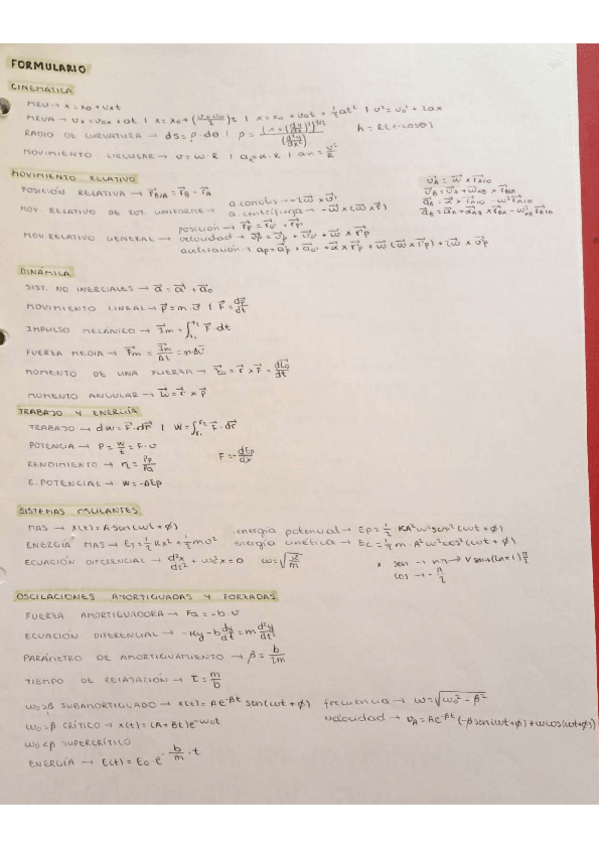 FORMULARIO
CINEMÁTICA
MRU → x = x₀ + vₓt
MRUA → vₓ = v₀ₓ + at | x = x₀ + (v+v₀/2)t | x = x₀ + v₀t + ½at² | v² = v₀² + 2ax
RADIO DE CURVATURA → ds = ρ·dθ | ρ = [1+(dy/dx)²]^3/2 / (d²y/dx²) h = R(1-cosθ)
MOVIMIENTO CIRCULAR → v = ω·R | a = α·R | aₙ = v²/R
MOVIMIENTO RELATIVO
POSICIÓN RELATIVA → r⃗B/A = r⃗B - r⃗A
MOV. RELATIVO DE ROT. UNIFORME → a.coriolis → -2ω⃗ × v⃗'
a.centrífuga → -ω⃗ × (ω⃗ × r⃗)
v⃗A = ω⃗ × r⃗A/O
v⃗B = v⃗A + ω⃗AB × r⃗BA
a⃗A = α⃗ × r⃗A/O - ω² r⃗A/O
a⃗B = a⃗A + α⃗AB × r⃗BA - ω² r⃗B/A
MOV RELATIVO GENERAL → posición → r⃗p = r⃗o' + r⃗p'
velocidad → v⃗p = v⃗p' + v⃗o' + ω⃗ × r⃗'p
aceleración → ap = a⃗'p + a⃗o' + α⃗ × r⃗'p + ω⃗ × (ω⃗ × r⃗'p) + 2ω⃗ × v⃗'p
DINÁMICA
SIST. NO INERCIALES → a⃗ = a⃗' + a⃗₀
MOVIMIENTO LINEAL → p⃗ = m·v⃗ | F⃗ = dp⃗/dt
IMPULSO MECÁNICO → I⃗m = ∫t₁^t₂ F⃗ dt
FUERZA MEDIA → F⃗m = I⃗m/Δt = m·Δv⃗
MOMENTO DE UNA FUERZA → = r⃗ × F⃗ = dL⃗o/dt
MOMENTO ANGULAR → L⃗o = r⃗ × p⃗
TRABAJO Y ENERGÍA
TRABAJO → dW = F⃗·dr⃗ | W = ∫r₁^r₂ F⃗·dr⃗
POTENCIA → P = W/t = F·v
F = -dEp/dx
RENDIMIENTO → η = Pp/Pa
E.POTENCIAL → W = -ΔEp
SISTEMAS OSCILANTES
MAS → x(t) = A sen(ωt + ϕ) energía potencial → Ep = ½ KA²ω²sen²(ωt + ϕ)
ENERGÍA MAS → ET = ½Kx² + ½mv² energía cinética → Ec = ½ m·A²ω²cos²(ωt + ϕ)
ECUACIÓN DIFERENCIAL → d²x/dt² + ω₀²x = 0 ω = √k/m
* sen → nπ → V sen → (2n+1)π/2
cos → -π/2
OSCILACIONES AMORTIGUADAS Y FORZADAS
FUERZA AMORTIGUADORA → Fa = -b·v
ECUACIÓN DIFERENCIAL → -Ky - b dy/dt = m d²y/dt²
PARÁMETRO DE AMORTIGUAMIENTO → β = b/2m
TIEMPO DE RELAJACIÓN → τ = m/b
ω₀>β SUBAMORTIGUADO → x(t) = Ae^-βt sen(ωt + ϕ) frecuencia → ω = √ω₀² - β²
ω₀=β CRÍTICO → x(t) = (A + Bt)e^-ω₀t velocidad → vA = Ae^-βt(-βsen(ωt+ϕ) + ωcos(ωt+ϕ))
ω₀<β SUPERCRÍTICO
ENERGÍA → E(t) = E₀·e^-b/m·t